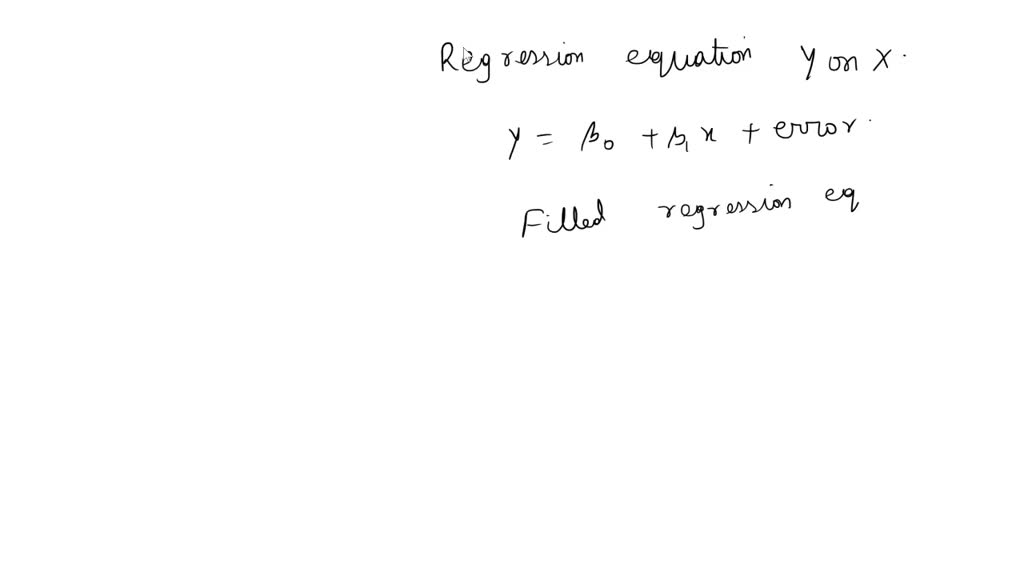 Regression equation Y on X.
y = β₀ + β₁ x + error.
Filled regression eq